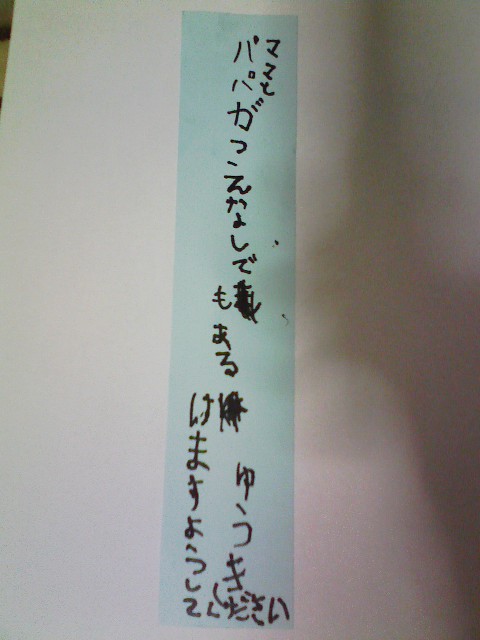 ママも
パパガつえなしで
もある
けますようして
ください
ゆうき